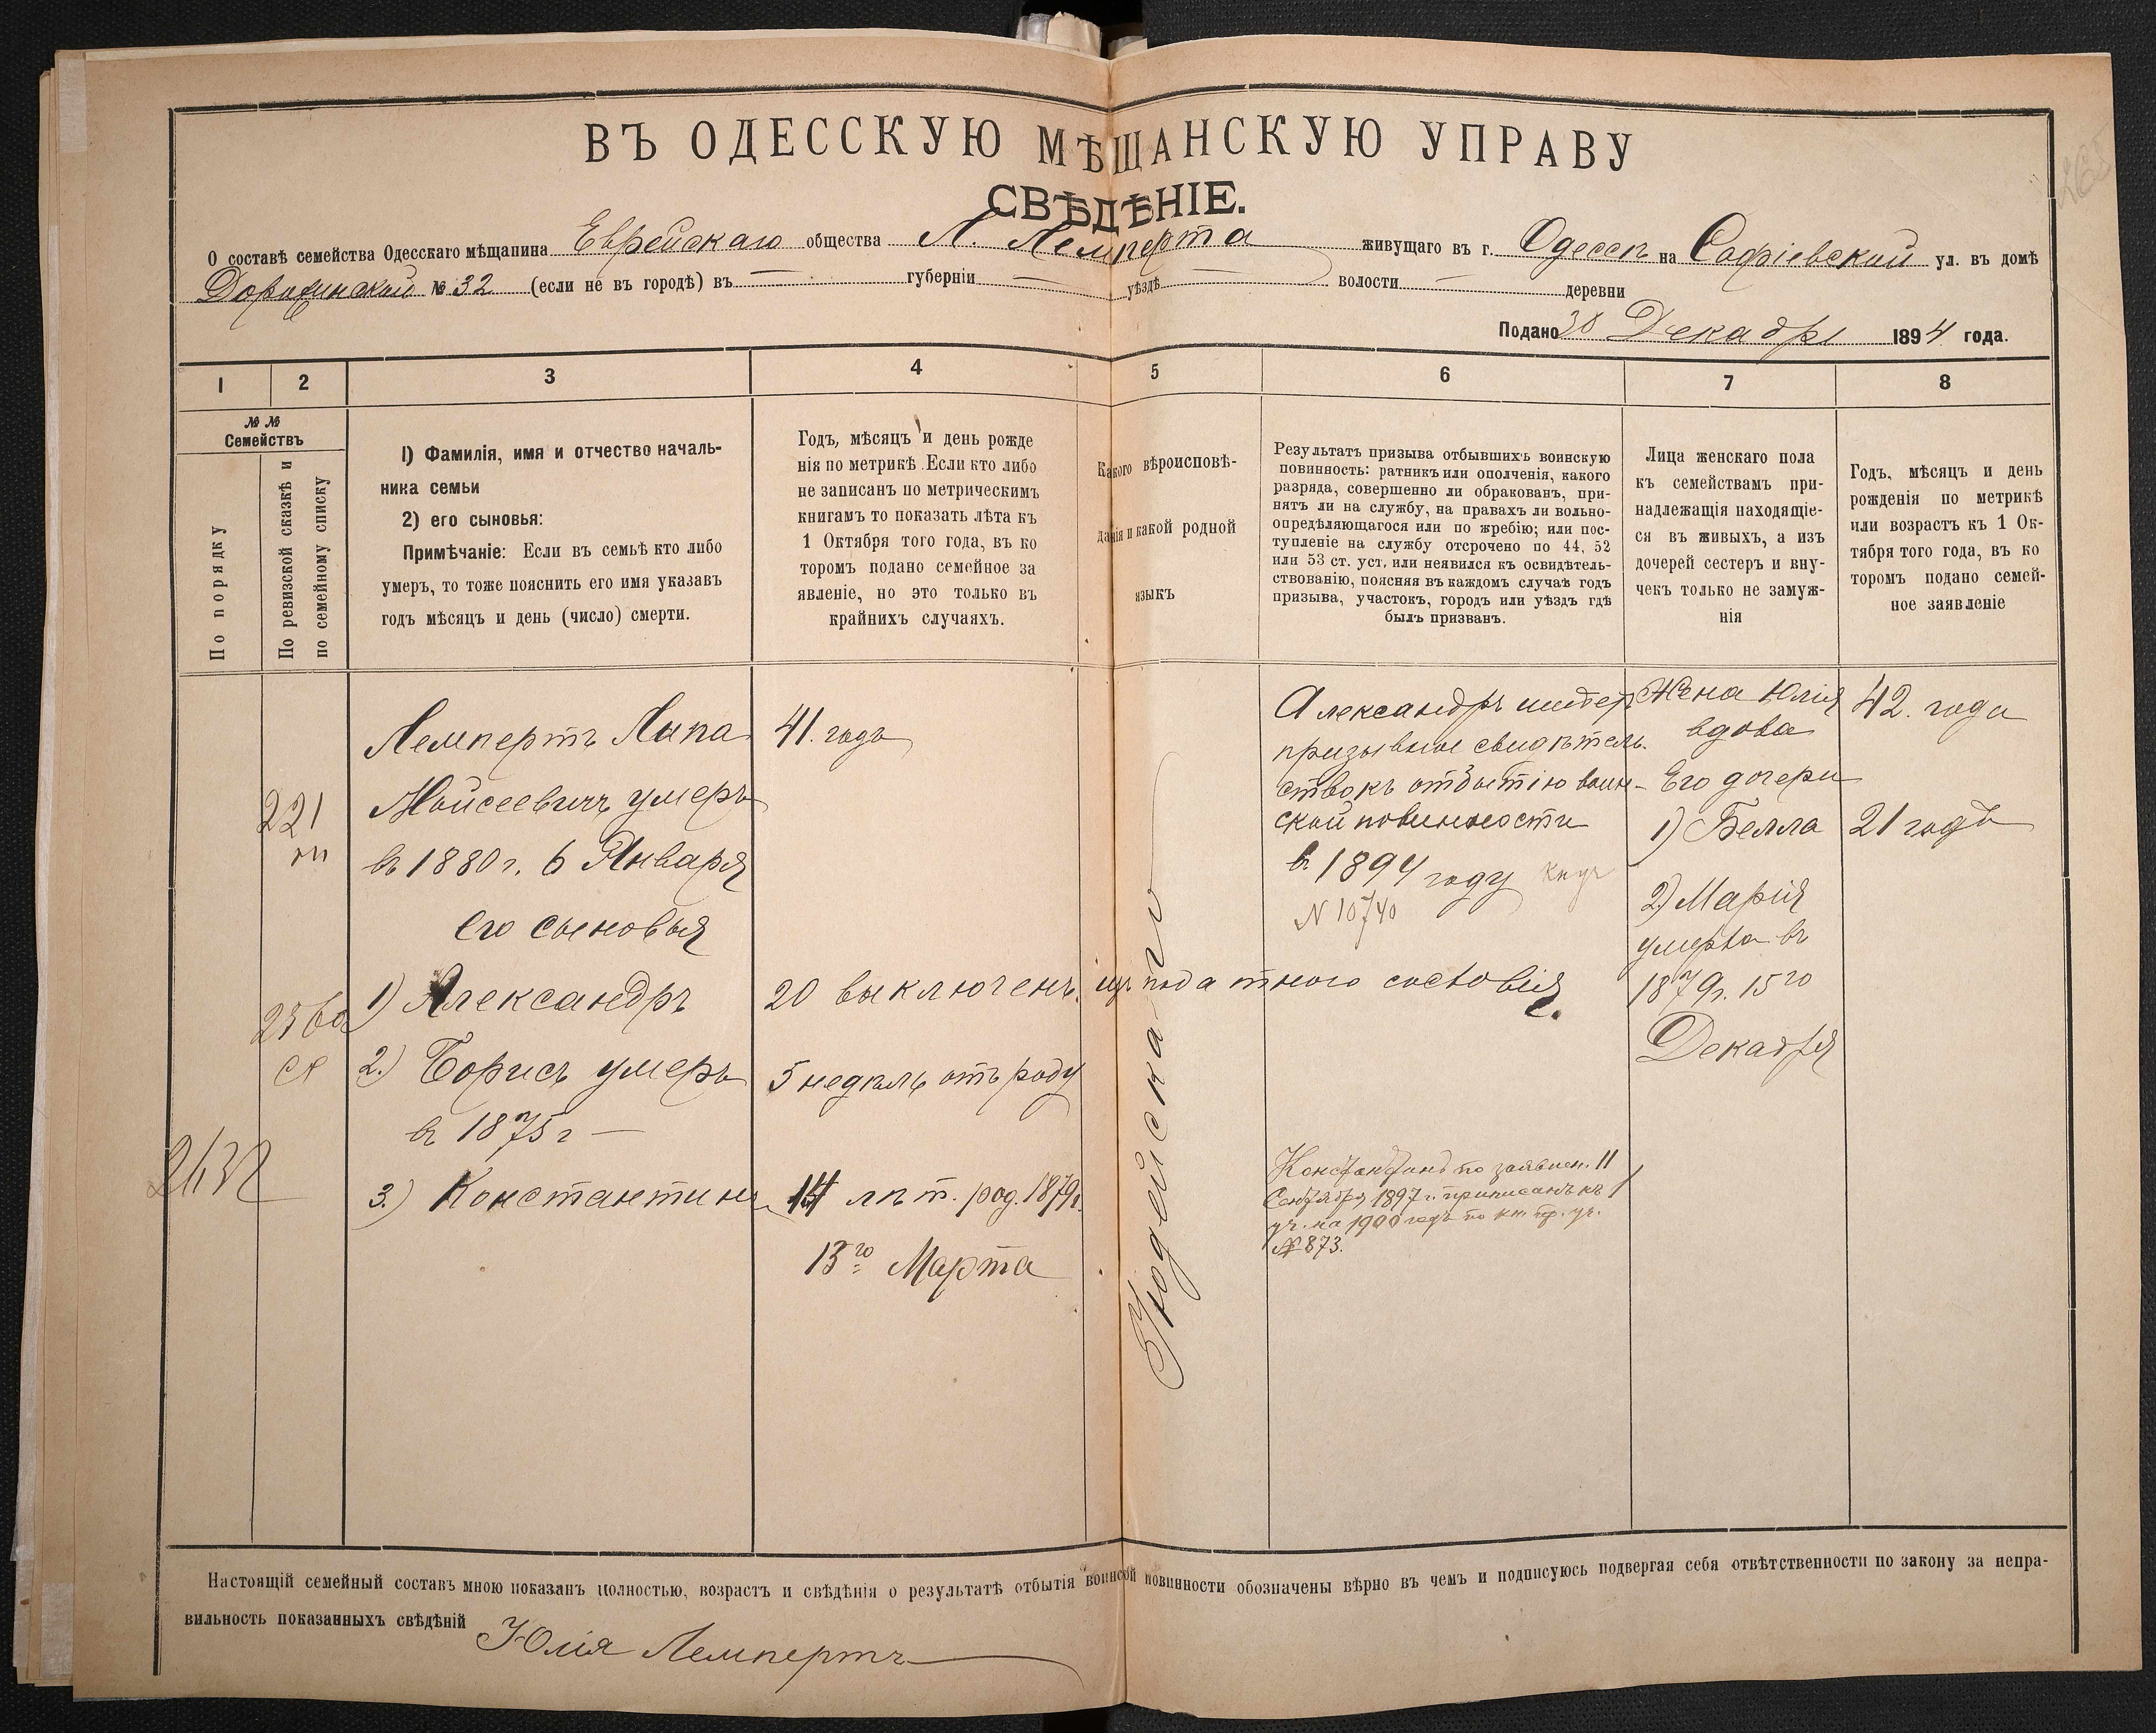 ВЪ ОДЕССКУЮ МѢЩАНСКУЮ УПРАВУ
СВѢДѢНІЕ.
О составѣ семейства Одесскаго мѣщанина Еврейскаго общества Л. Лемперта живущаго въ г. Одессѣ на Софіевской ул. въ домѣ
№ 32 (если не въ городѣ) въ — губерніи — уѣздѣ — волости — деревни
Подано 30 Декабря 1894 года.
1 2 3 4 5 6 7 8
№ №
Семействъ
По порядку
По ревизской сказкѣ и
по семейному списку
1) Фамилія, имя и отчество началь-
ника семьи
2) его сыновья:
Примѣчаніе: Если въ семьѣ кто либо
умеръ, то тоже пояснить его имя указавъ
годъ мѣсяцъ и день (число) смерти.
Годъ, мѣсяцъ и день рожде
нія по метрикѣ. Если кто либо
не записанъ по метрическимъ
книгамъ то показать лѣта къ
1 Октября того года, въ ко
торомъ подано семейное за
явленіе, но это только въ
крайнихъ случаяхъ.
Какого вѣроисповѣ-
данія и какой родной
языкъ
Результатъ призыва отбывшихъ воинскую
повинность: ратникъ или ополченія, какого
разряда, совершенно ли обракованъ, при-
нятъ ли на службу, на правахъ ли вольно-
опредѣляющагося или по жребію; или пос-
тупленіе на службу отсрочено по 44, 52
или 53 ст. уст. или неявился къ освидѣтель-
ствованію, поясняя въ каждомъ случаѣ годъ
призыва, участокъ, городъ или уѣздъ гдѣ
былъ призванъ.
Лица женскаго пола
къ семействамъ при-
надлежащія находящіе-
ся въ живыхъ, а изъ
дочерей сестеръ и вну-
чекъ только не замуж-
нія
Годъ, мѣсяцъ и день
рожденія по метрикѣ
или возрастъ къ 1 Ок-
тября того года, въ ко
торомъ подано семей-
ное заявленіе
221
Лемпертъ Липа
Мойсеевичъ умеръ
въ 1880 г. 6 Января
его сыновья
1) Александръ
2.) Борисъ умеръ
въ 1875 г —
3.) Константинъ
41. годъ
20 выключенъ изъ податного состоянія
5 недѣль отъ роду
лѣт. род. 1879 г.
13го Марта
Іудейскаго
Александръ имѣетъ
призывное свидѣтель-
ство къ отбытію воин-
ской повинности
въ 1894 году
N 10740
Константинъ по заявлен. 11
Сентября 1897 г. приписанъ къ 1
уч. на 1900 годъ по кн. пр. уч.
№ 873.
Жена Юлія
вдова
Его дочери
1) Белла
2) Марія
умерла въ
1879 г. 15го
Декабря
42. года
21 годъ
Настоящій семейный составъ мною показанъ полностью, возрастъ и свѣдѣнія о результатѣ отбытія воинской повинности обозначены вѣрно въ чемъ и подписуюсь подвергая себя отвѣтственности по закону за непра-
вильность показанныхъ свѣдѣній Юлія Лемпертъ